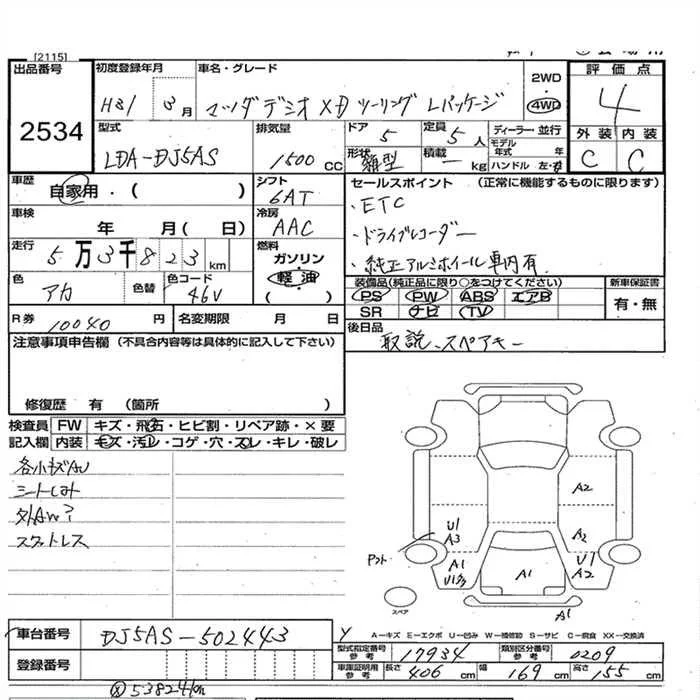 [2115]
出品番号
2534
初度登録年月
H31 3月
車名・グレード
マツダ デミオ XD ツーリング Lパッケージ
2WD
・
4WD
評価点
4
外装 内装
C C
型式
LDA-DJ5AS
排気量
1500 cc
ドア
5
定員
5 人
ディーラー・並行
モデル年式 年
形状
箱型
積載
― kg
ハンドル 左・右
車歴
自家用・( )
シフト
6AT
セールスポイント (正常に機能するものに限ります)
・ETC
・ドライブレコーダー
・純正アルミホイール車内有
車検
年 月( 日)
冷房
AAC
走行
5万3千823 km
燃料
ガソリン
・
軽油
( )
色
アカ
色替
色コード
46V
装備品(純正品に限り○をつけてください)
PS PW ABS エアB
SR ナビ TV
新車保証書
有・無
R券
10040 円
名変期限 月 日
後日品
取説、スペアキー
注意事項申告欄 (不具合内容等は具体的に記入して下さい)
修復歴 有 (箇所 )
検査員記入欄
FW キズ・飛石・ヒビ割・リペア跡・×要
内装 キズ・汚レ・コゲ・穴・スレ・キレ・破レ
各小キズAU
シートしみ
外AW?
スペアレス
A2
U1
A3
A2
A1
U1
A2
A1
A1
スペア
車台番号
DJ5AS-502443
登録番号
A―キズ E―エクボ U―凹み W―補修跡 S―サビ C―腐食 XX―交換済
型式指定番号
参考
17934
類別区分番号
参考
0209
車庫証明用
参考
長さ 406 cm 幅 169 cm 高さ 155 cm
53824km